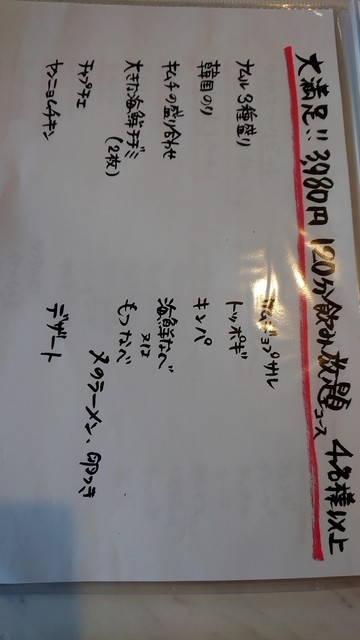 大満足!! 3,980円 120分飲み放題コース 4名様以上
ナムル3種盛り
韓国のり
キムチの盛り合わせ
大きな海鮮チヂミ
(2枚)
チャプチェ
ヤンニョムチキン
サムギョプサル
トッポギ
キンパ
海鮮なべ
又は
もつなべ
〆のラーメン、卵つき
デザート